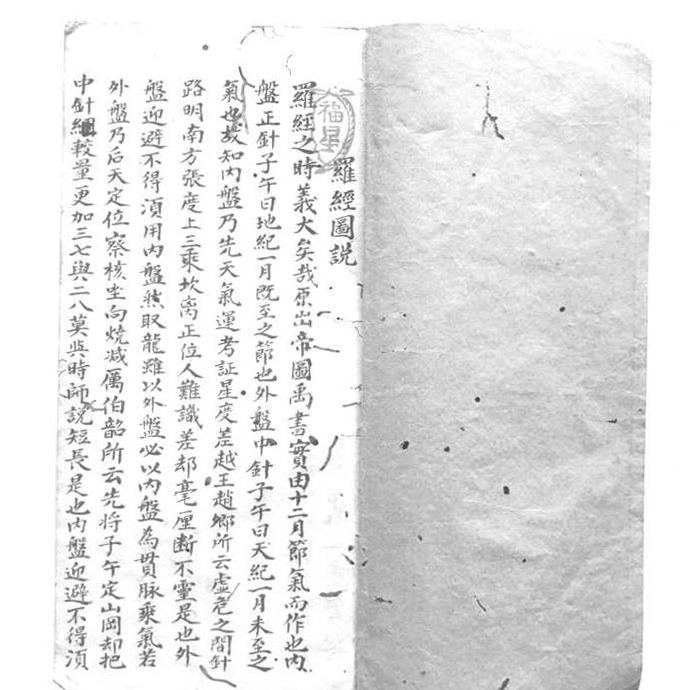 福星
羅經圖説
羅經之時義大矣哉原出帝圖禹書實由十二月節氣而作也内
盤正針子午曰地紀一月既至之節也外盤中針子午曰天紀一月未至之
氣也故知内盤乃先天氣運考証星度差越王趙鄉所云虛危之間針
路明南方張度上三乘坎离正位人難識差却毫厘断不靈是也外
盤迎避不得湏用内盤然取龍雖以外盤必以内盤為貫脉乘氣若
外盤乃后天定位察核坐向燒减厲伯韶所云先将子午定山岡却把
中針細較量更加三七與二八莫與時師說短長是也内盤迎避不得湏